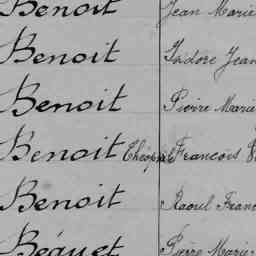 Benoit Jean Marie
Benoit Isidore Jean
Benoit Pierre Marie
Benoit Théophile François
Benoit Raoul Franc
Béquet Pierre Marie